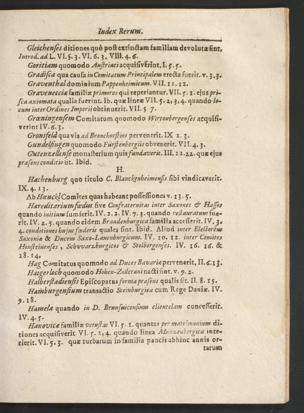 Index Rerum.
Gleichenses ditiones quò post extinctam familiam devolutæ sint.
Introd. ad L. VI. §. 3. VI. 6. 3. VIII. 4. 6.
Goritiam quomodo Austriaci acquisiverint. I. 5. 5.
Gradisca qua causa in Comitatum Principalem erecta fuerit. v. 3. 3.
Graventhal dominium Pappenheimicum. VII. 11. 12.
Græveneccia familiæ primores qui reperiantur. VII. 5. 2. ejus
axiomata qualia fuerint. Ib. quæ lineæ VII. 5. 2, 3, 4. quando
cum inter Ordines Imperii obtinuerit. VII. 5. 7.
Grœningensem Comitatum quomodo Wertenbergenses acquisiverint
IV. 6. 3.
Gronsfeld qua via ad Bronchorstios pervenerit. IX 2. 3.
Gundelfingen quomodo Fürstenbergiis obvenerit. VII. 4. 3.
Gutenzellense monasterium quis fundaverit. III. 22. 22. quæ ejus
præsens conditio sit. Ibid.
H.
Hachenburg quo titulo C. Blanckenheimensis sibi vindicaverit.
IX. 4. 13.
Ab Comites quas habeant possessiones v. 13. 5.
Hæreditarium fœdus sive Confraternitas inter Saxones & Hassos
quando initium sumserit. IV. 2. 2. IV. 7. 3. quando restauratum fuerit.
IV. 2. 5. quando eidem Brandenburgica familia accesserit. IV, 3.
4. conditiones hujus fœderis quales sint. Ibid. Aliud inter Electorem
Saxoniæ & Ducem Saxo-Lauenburgicum. IV. 10. 12. inter Comites
Honsteinenses, Schwarzburgicos & Stolbergenses. IV. 16. 16. &
18. 14.
Hag Comitatus quomodo ad Duces Bavaria pervenerit. II. 6. 23.
Haigerloch quomodo Hohen-Zolerani nacti sint. v. 9. 2.
Halberstadiensis Episcopatus forma præsens qualis sit. II. 8. 25.
Hamburgensium transactio Steinburgica cum Rege Daniæ. IV.
9. 18.
Hamela quando in D. Brunsuicensium clientelam concesserit.
IV. 4. 5.
Hanovica familiæ vetustas VI. 5. 1. quantas per matrimonium ditiones
acquisiverit. VI. 5. 2, 4. quando linea Münzenbergica interierit.
VI. 5. 3. quæ turbarum in familia paucis abhinc annis ortarum